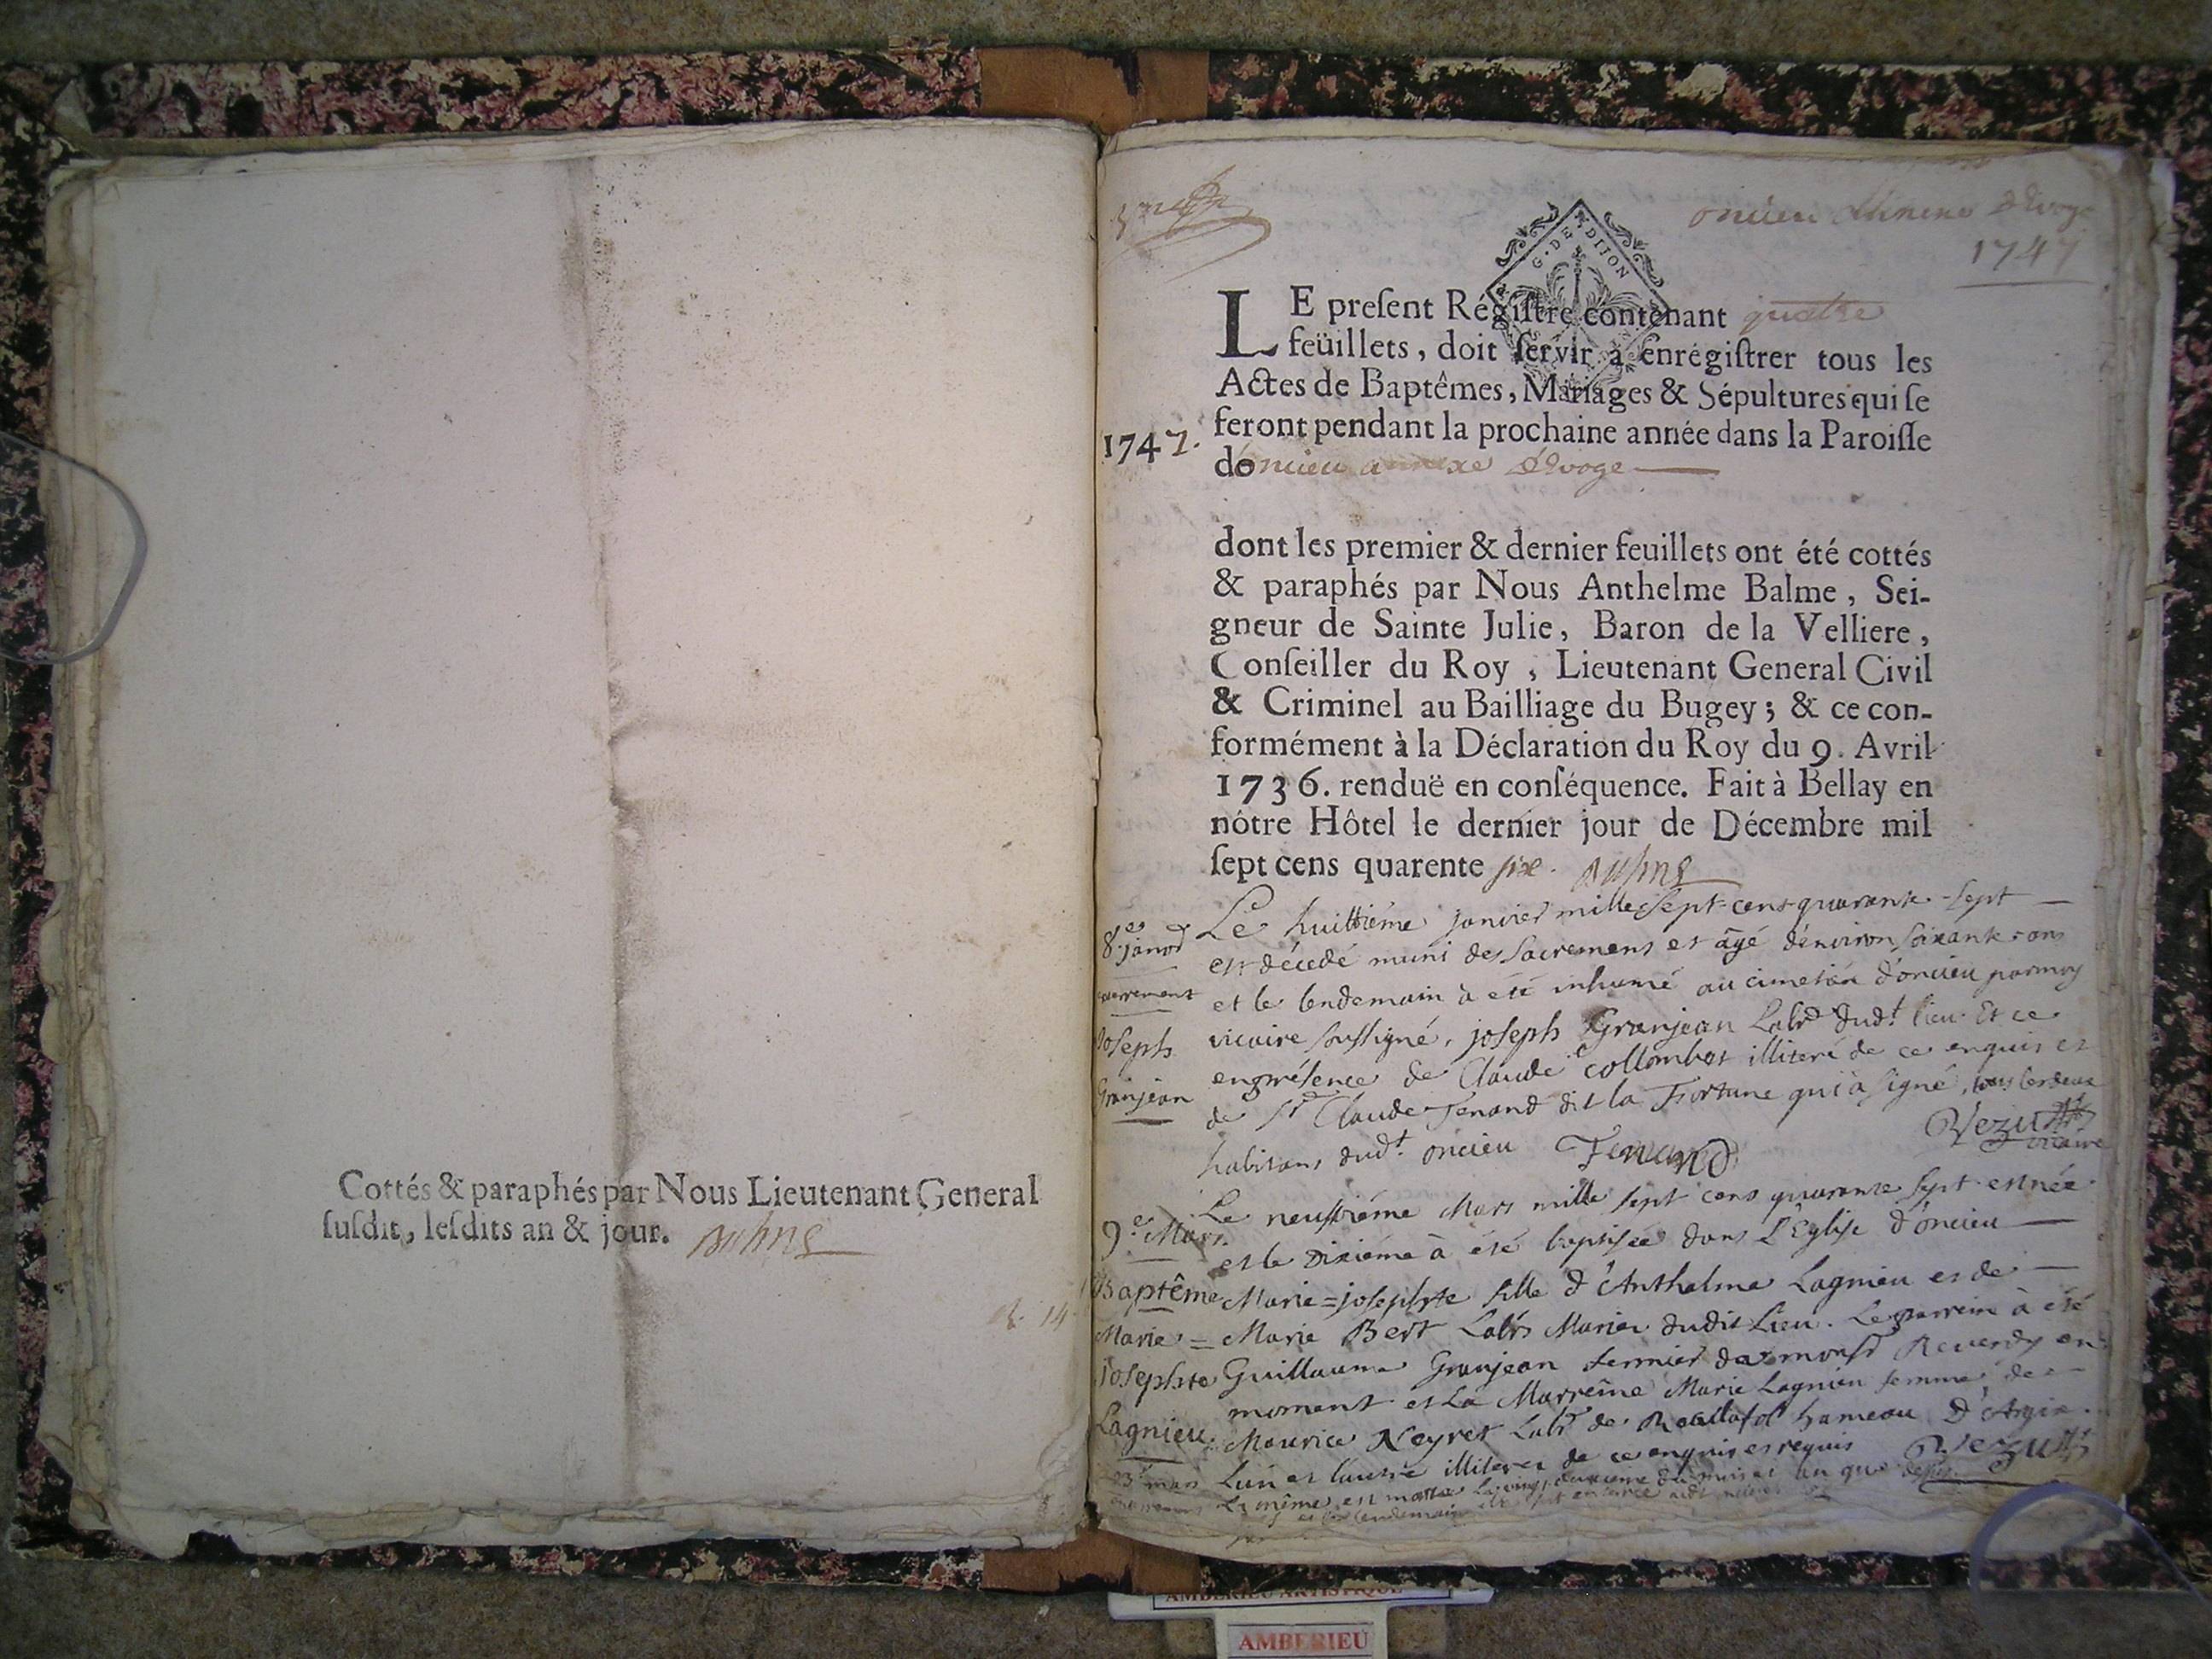 Cottés & paraphés par Nous Lieutenant General
ſuſdit, leſdits an & jour.
oncieu annexe d'Evoge
1747
G. DE DIJON
LE preſent Régiſtre contenant quatre
feüillets, doit ſervir à enrégiſtrer tous les
Actes de Baptêmes, Mariages & Sépultures qui ſe
feront pendant la prochaine année dans la Paroiſſe
1747.
doncieu annexe d'Evoge
dont les premier & dernier feuillets ont été cottés
& paraphés par Nous Anthelme Balme, Sei-
gneur de Sainte Julie, Baron de la Velliere,
Conſeiller du Roy, Lieutenant General Civil
& Criminel au Bailliage du Bugey; & ce con-
formément à la Déclaration du Roy du 9. Avril
1736. renduë en conſéquence. Fait à Bellay en
nôtre Hôtel le dernier jour de Décembre mil
ſept cens quarente six.
8e janvd
enterrement
Joseph
Granjean
Le huittiéme janvier mille sept-cens-quarante-sept
est décedé muni des Sacremens et âgé d'environ soixante-ans
et le lendemain à été inhumé au cimetiére d'oncieu par moy
vicaire soussigné, joseph Granjean Labr dudt lieu. Et ce
en présence de Claude Collombet illiteré de ce enquis et
de Sr Claude Tenand dit la Fortune qui à signé, tous les deux
habitans dudt. oncieu Tenand
Vezu
vicaire
9e Mars.
Baptême
Marie=
josephte
Lagnieu.
Le neufviéme Mars mille sept cens quarante sept est née
et le Dixiéme à été baptisée dans l'Eglise d'oncieu
Marie=josephte fille d'Anthelme Lagnieu et de
Marie Bert Labrs Mariez dudit Lieu. Le parrein à été
Guillaume Granjean fermier de monsr Reverdy en
moment et La Marreine Marie Lagnieu femme de
Maurice Neyret Labr de hameau D'Argis.
L'un et l'autre illiterez de ce enquis et requis
Vezu
23e mars
La même est morte Le vingt deuxieme du mois et an que dessus
et le lendemain
AMBERIEU ARTISTIQUE
AMBERIEU